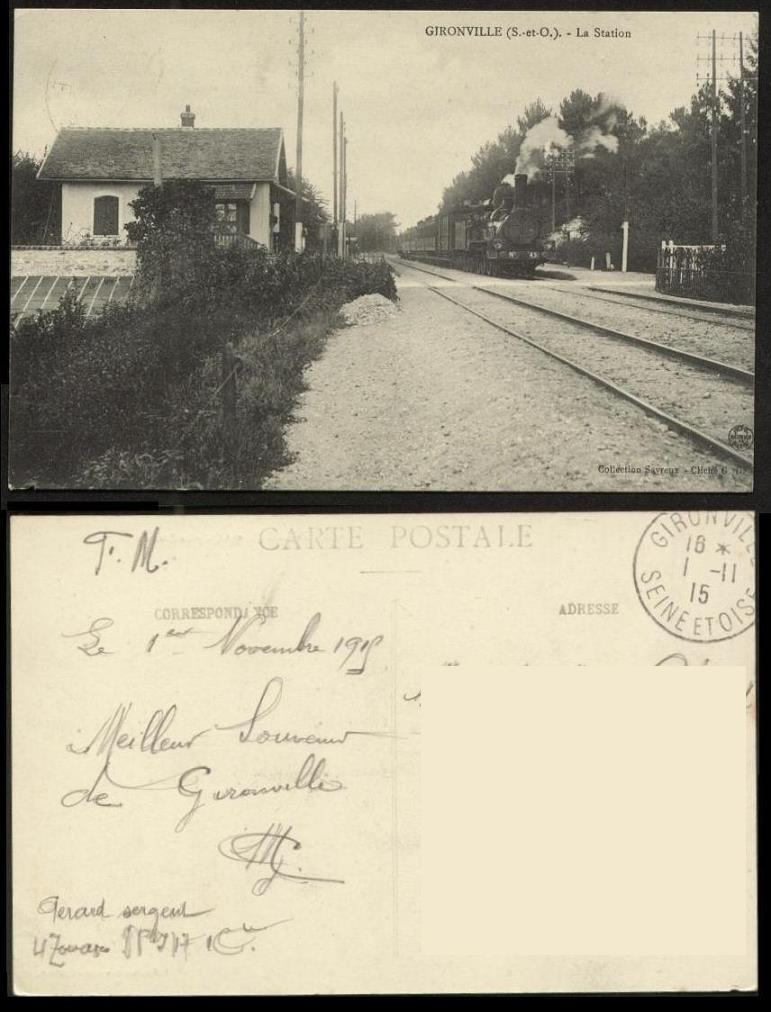 GIRONVILLE (S.-et-O.). - La Station
Collection Savreux - Cliché G
F. M.
CARTE POSTALE
GIRONVILLE
18 *
1 -11
15
SEINE ET OISE
CORRESPONDANCE
ADRESSE
Le 1er Novembre 1915
Meilleur Souvenir
de Gironville
Gerard sergent
4 Zouaves